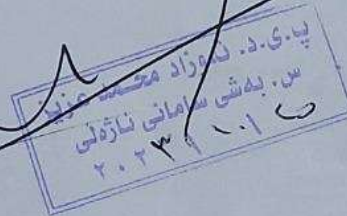 پ.ی.د. نەوزاد محمد عزیز
س. بەشی سامانی ئاژەڵی
٢٠٢٣/١٠/١